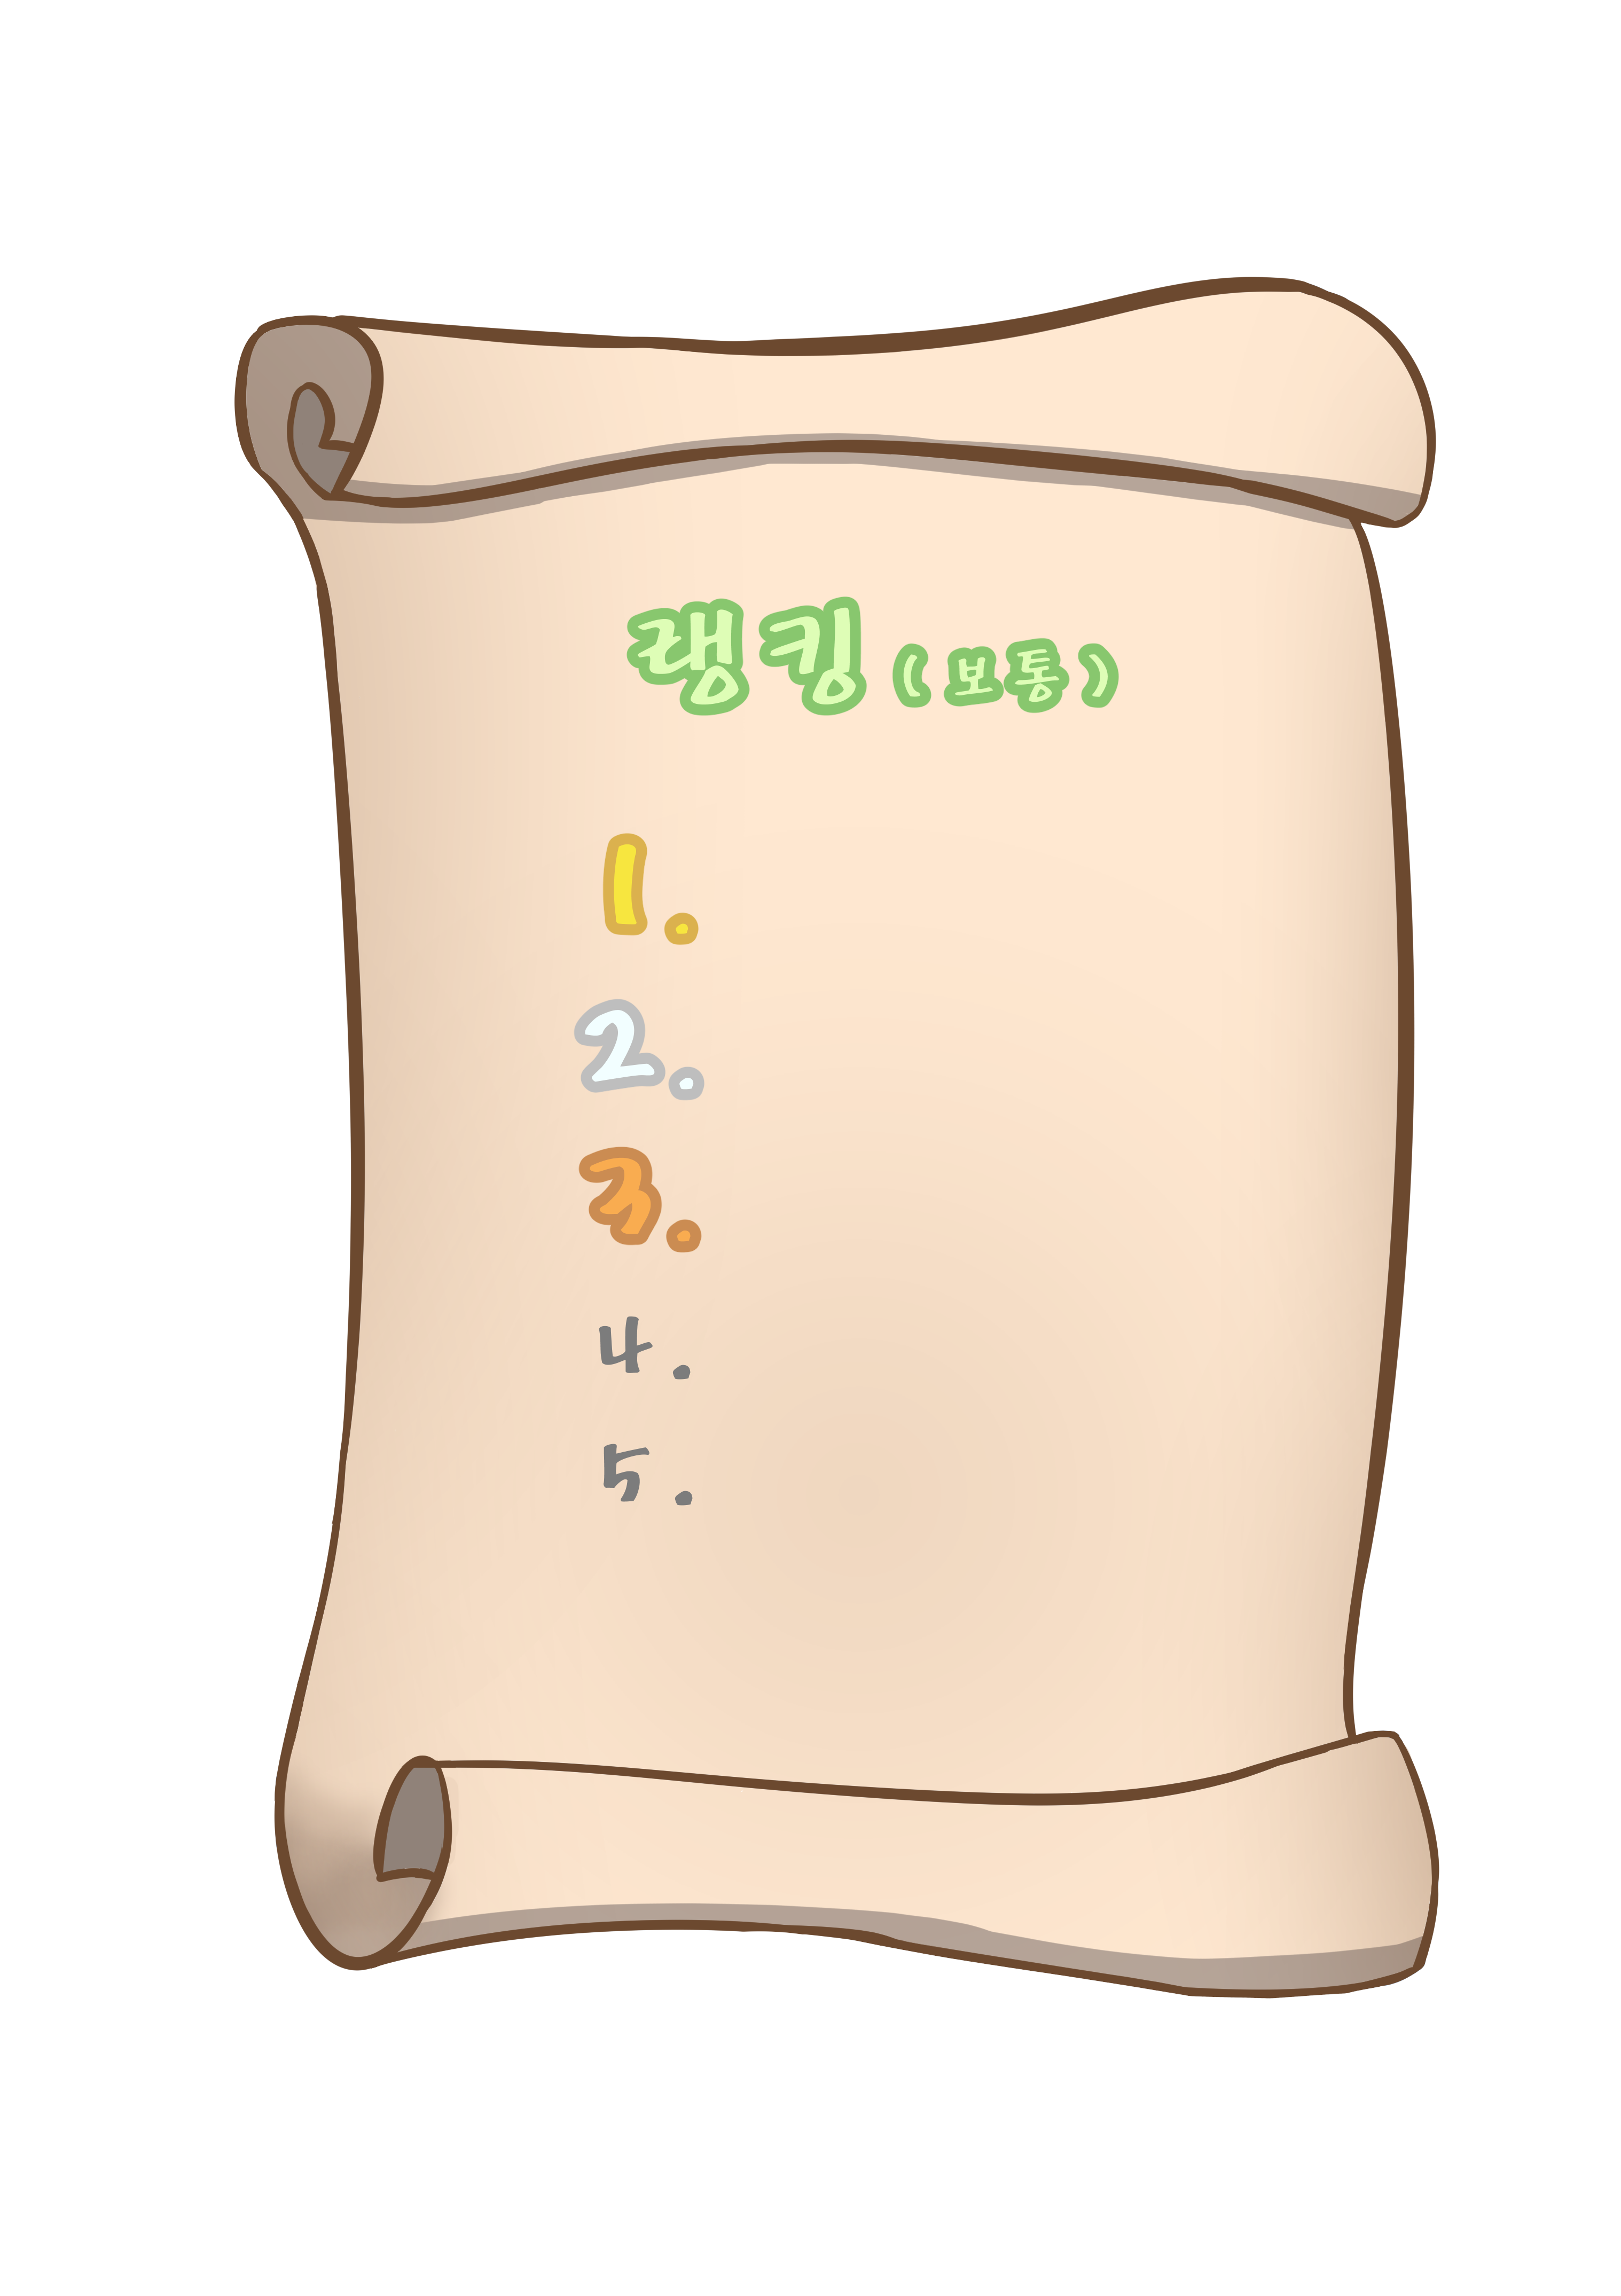 랭킹 (보통)
1.
2.
3.
4.
5.